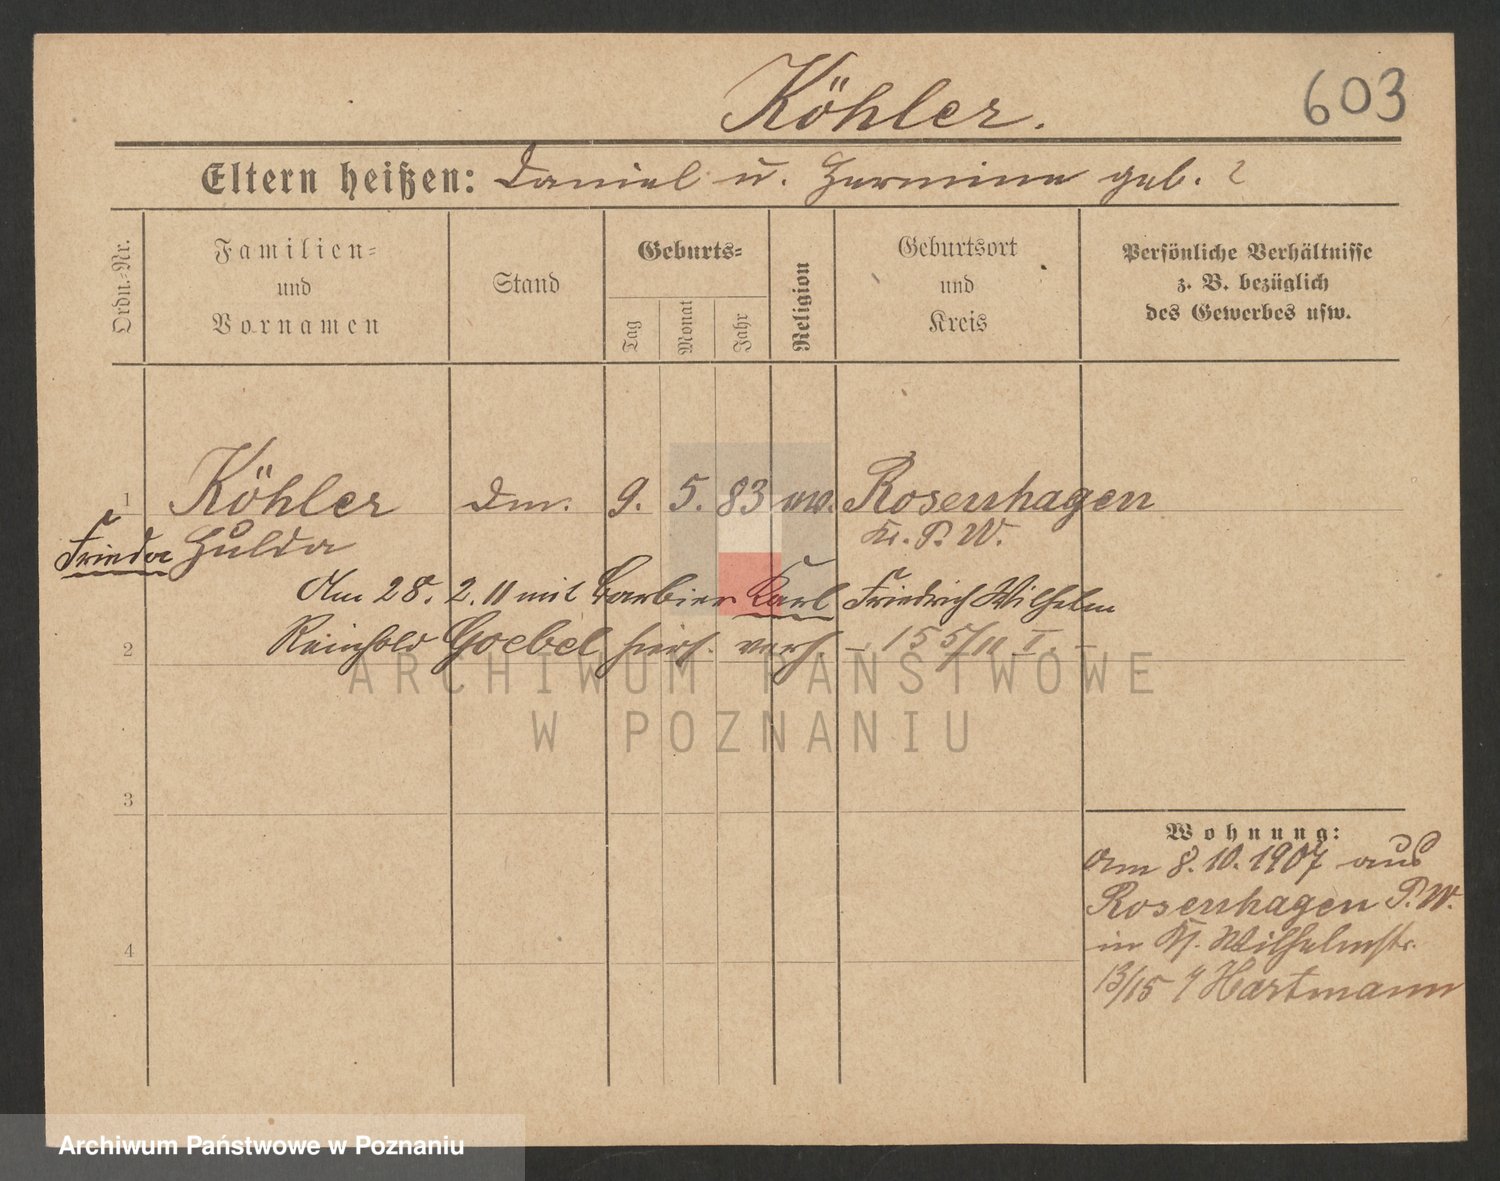 Köhler.
603
Eltern heißen: Daniel u. Hermine geb. ?
Ordn.=Nr.
Familien=
und
Vornamen
Stand
Geburts=
Tag
Monat
Jahr
Religion
Geburtsort
und
Kreis
Persönliche Verhältnisse
z. B. bezüglich
des Gewerbes usw.
1 Köhler 9. 5. 83 Rosenhagen
Frieda Hulda Kr. P. W.
Am 28. 2. 11 mit Barbier Karl Friedrich Wilhelm
2 Reinhold Goebel hiers. verh. – 155/11 I. –
3
4
Wohnung:
Am 8. 10. 1907 aus
Rosenhagen P. W.
in Kl. Wilhelmstr.
13/15 Hartmann
ARCHIWUM PAŃSTWOWE
W POZNANIU
Archiwum Państwowe w Poznaniu